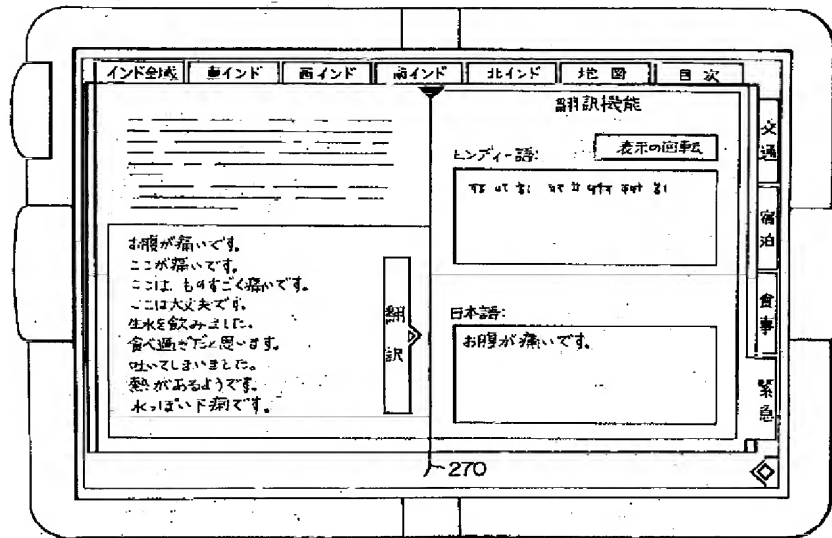 インド全域 東インド 西インド 南インド 北インド 地図 目次
翻訳機能
表示の回転
ヒンディー語:
お腹が痛いです。
ここが痛いです。
ここは、ものすごく痛いです。
ここは大丈夫です。
生水を飲みました。
食べ過ぎだと思います。
吐いてしまいました。
熱があるようです。
水っぽい下痢です。
翻訳
日本語:
お腹が痛いです。
交通
宿泊
食事
緊急
270